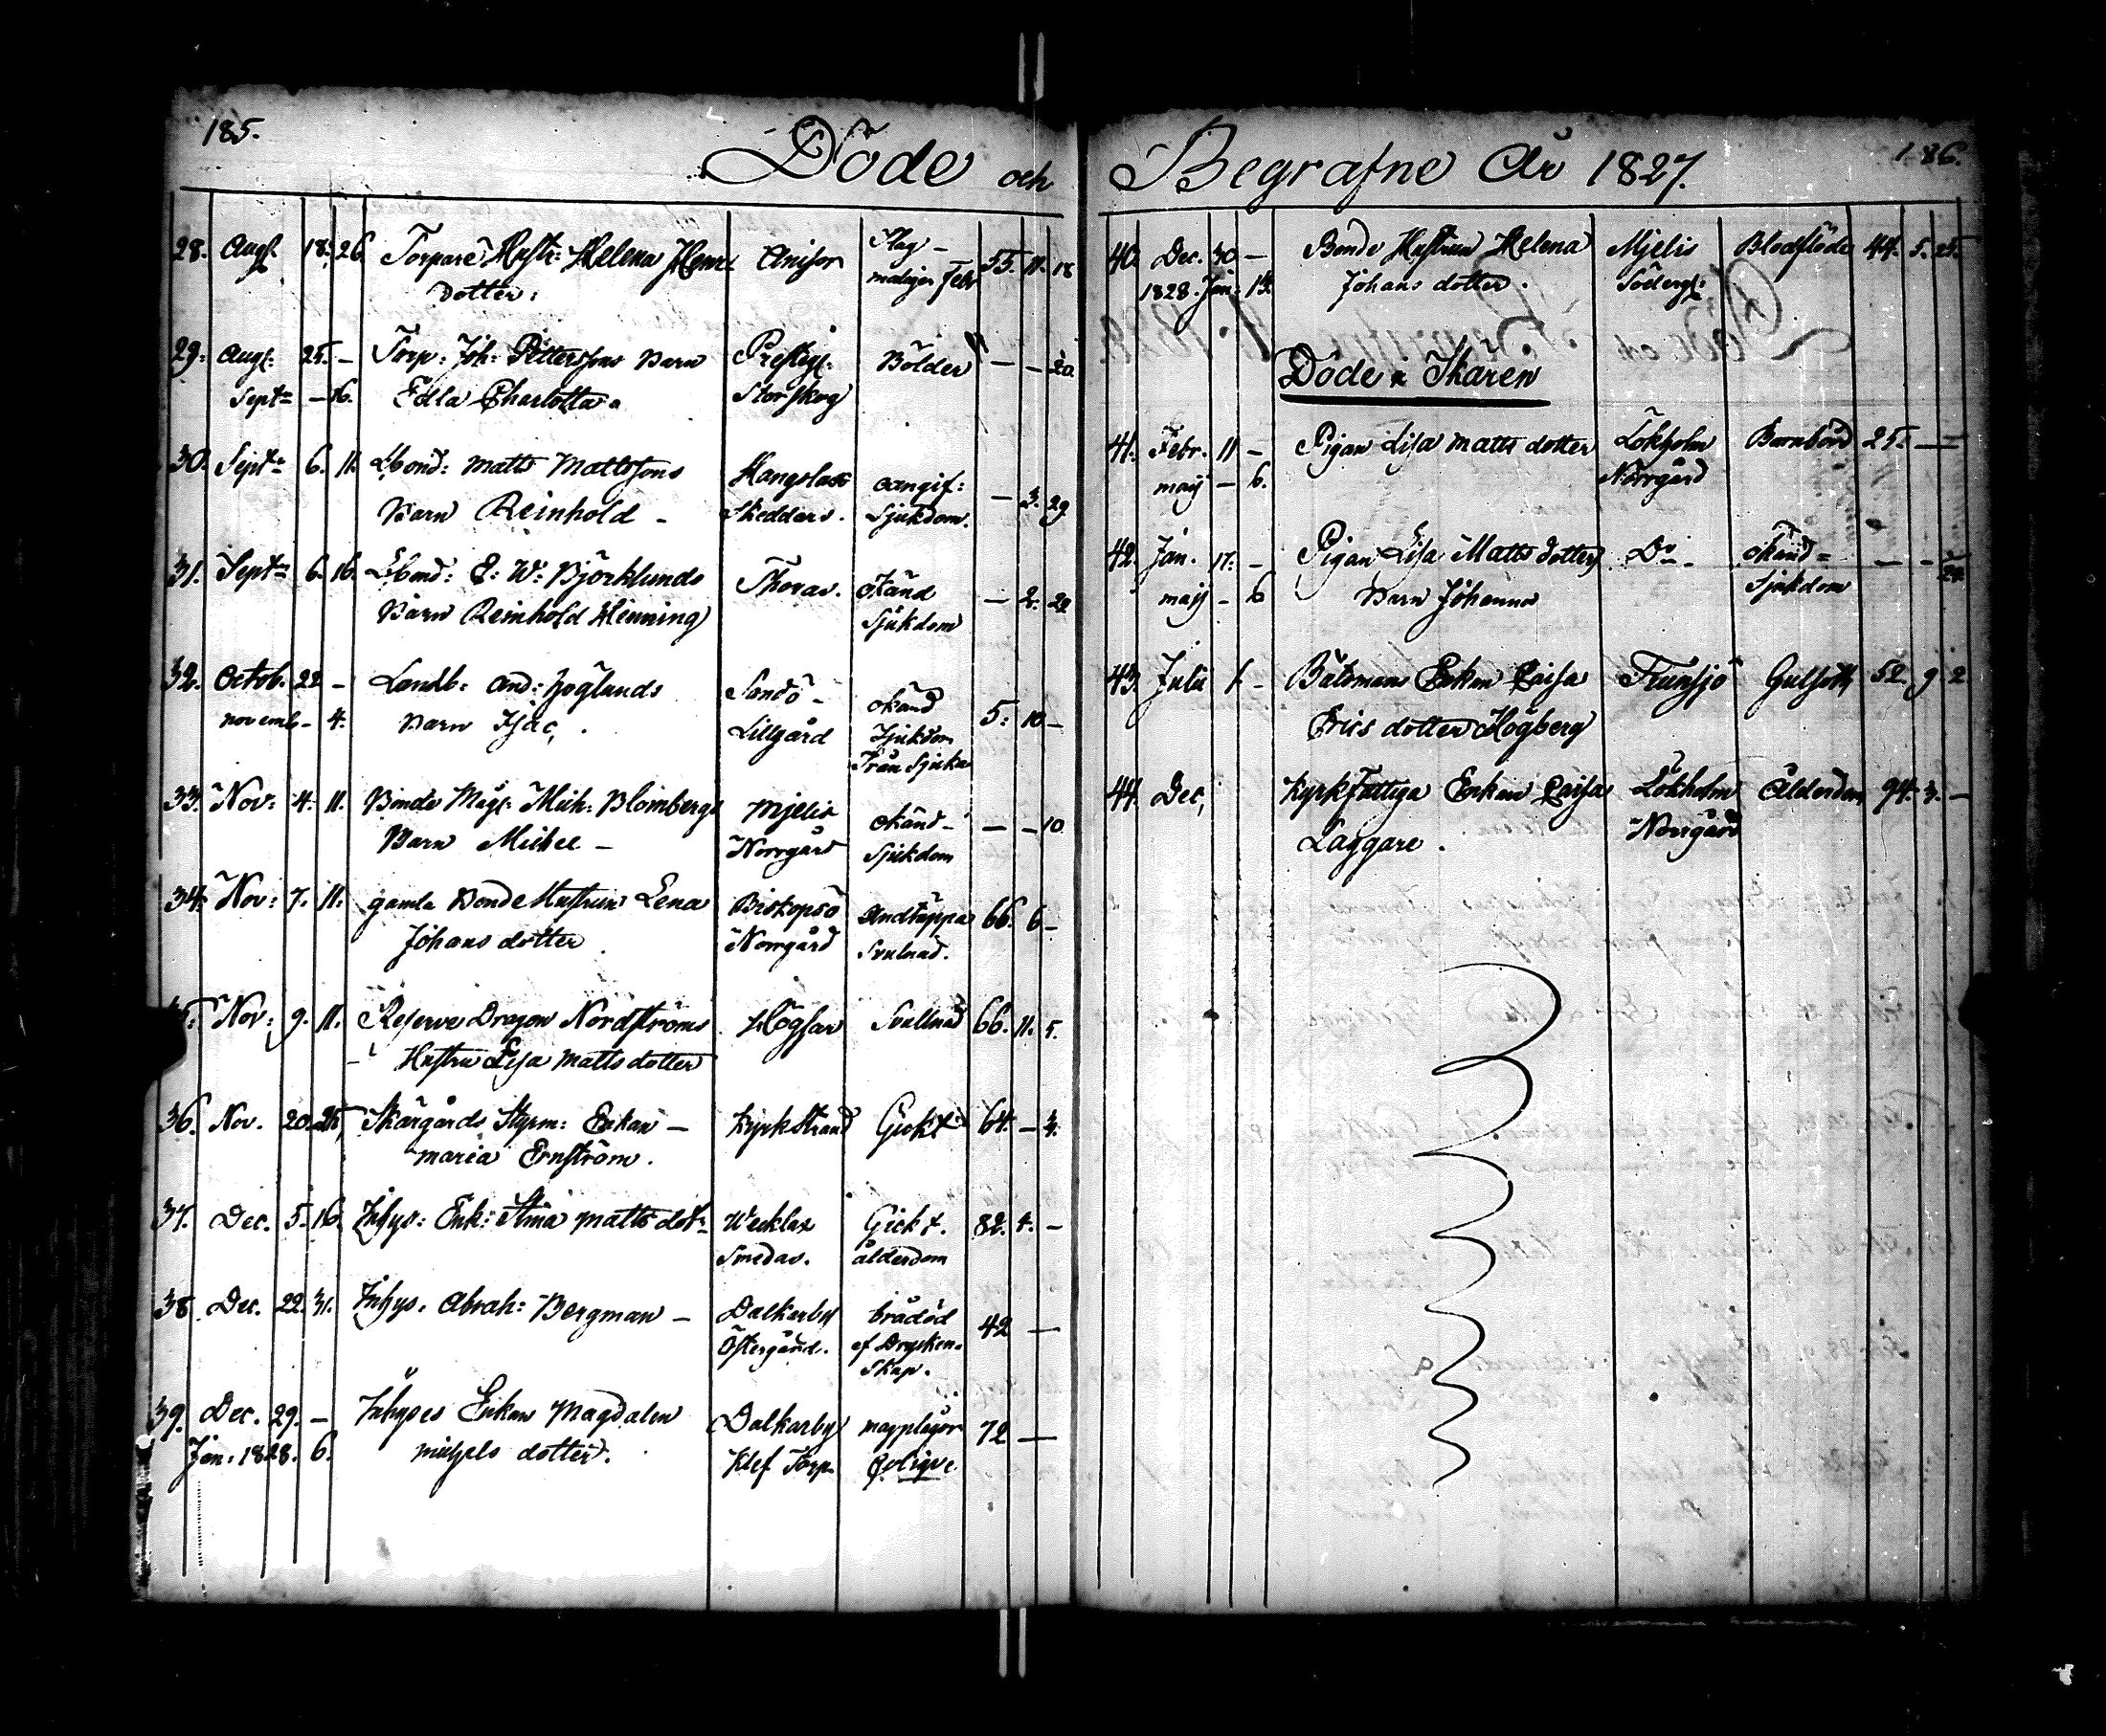 185.
Döde och
28. Augt 18. 26. Torpare Hustr: Helena Henr: Anisor Slag- 55. 11. 18
dotter.
29. Augt. 25. — Torp: Joh: Pettersons Barn Prestegl: Bölder — — 20.
Septr — 16. Edla Charlotta. Storskog
30. Septr 6. 11. Lbond: Matts Mattssons Hangslax oangif: — 3. 29
Barn Reinhold — Skedders. Sjukdom.
31. Septr 6. 16. Lbond: E: W: Björklunds Thoras. okänd — 2. 29
Barn Reinhold Henning Sjukdom
32. Octob. 22 — Landb: And: Höglunds Sandö- okänd 5. 10 —
novemb — 4. Barn Isac. Lillgård Sjukdom
Från Sjuka
33. Nov: 4. 11. Bonde Mich: Blombergs Mjelis okänd- — — 10
Barn Michel — Norrgård Sjukdom
34. Nov: 7. 11. gamla Bonde Hustrun Lena Biskopsö Andtäppa 66. 6 —
Johans dotter Norrgård Svulnad.
Nov: 9. 11. Reserve Dragon Nordströms Högsar Svullnad 66. 11. 5.
Hustru Lisa Matts dotter
36. Nov. 20. 25 Skärgårds Styrm: Enkan — Kyrkstrand Gickt 64. — 3.
Maria Ernström.
37. Dec. 5. 16. Inhys: Enk: Stina Matts dotr Wecklax Gickt. 82. 4. —
Smedas. ålderdom
38 Dec. 22. 31. Inhys. Abrah: Bergman — Dalkarby bradöd 42 —
Östergård. af Drycken-
skap.
39. Dec. 29. — Inhyses Enkan Magdalen Dalkarby 72 —
Jan: 1828. 6. Michels dotter. Klef Torp
Begrafne År 1827. 186.
40. Dec. 30 — Bonde Hustrun Helena Mjelis Blodflöde 44. 5. 25.
1828. Jan: 13. Johans dotter. Söderg:
Döde i Skären
41. Febr. 11 — Pigan Lisa Matts dotter Lökholm Barnbörd 25. —
maij — 6. Norrgård
42. Jan. 17. — Pigan Lisa Matts dotters Do — okänd- — — 24.
maij — 6 Barn Johanna Sjukdom
43. Julii 1 — Båtsmans Enkan Caisa Trunsjö Gulsot 52. 9 2
Erics dotter Högberg
44. Dec. Kyrkfattiga Enkan Caisa Lökholm Ålderdom 94. 3. —
Laggare. Norrgård